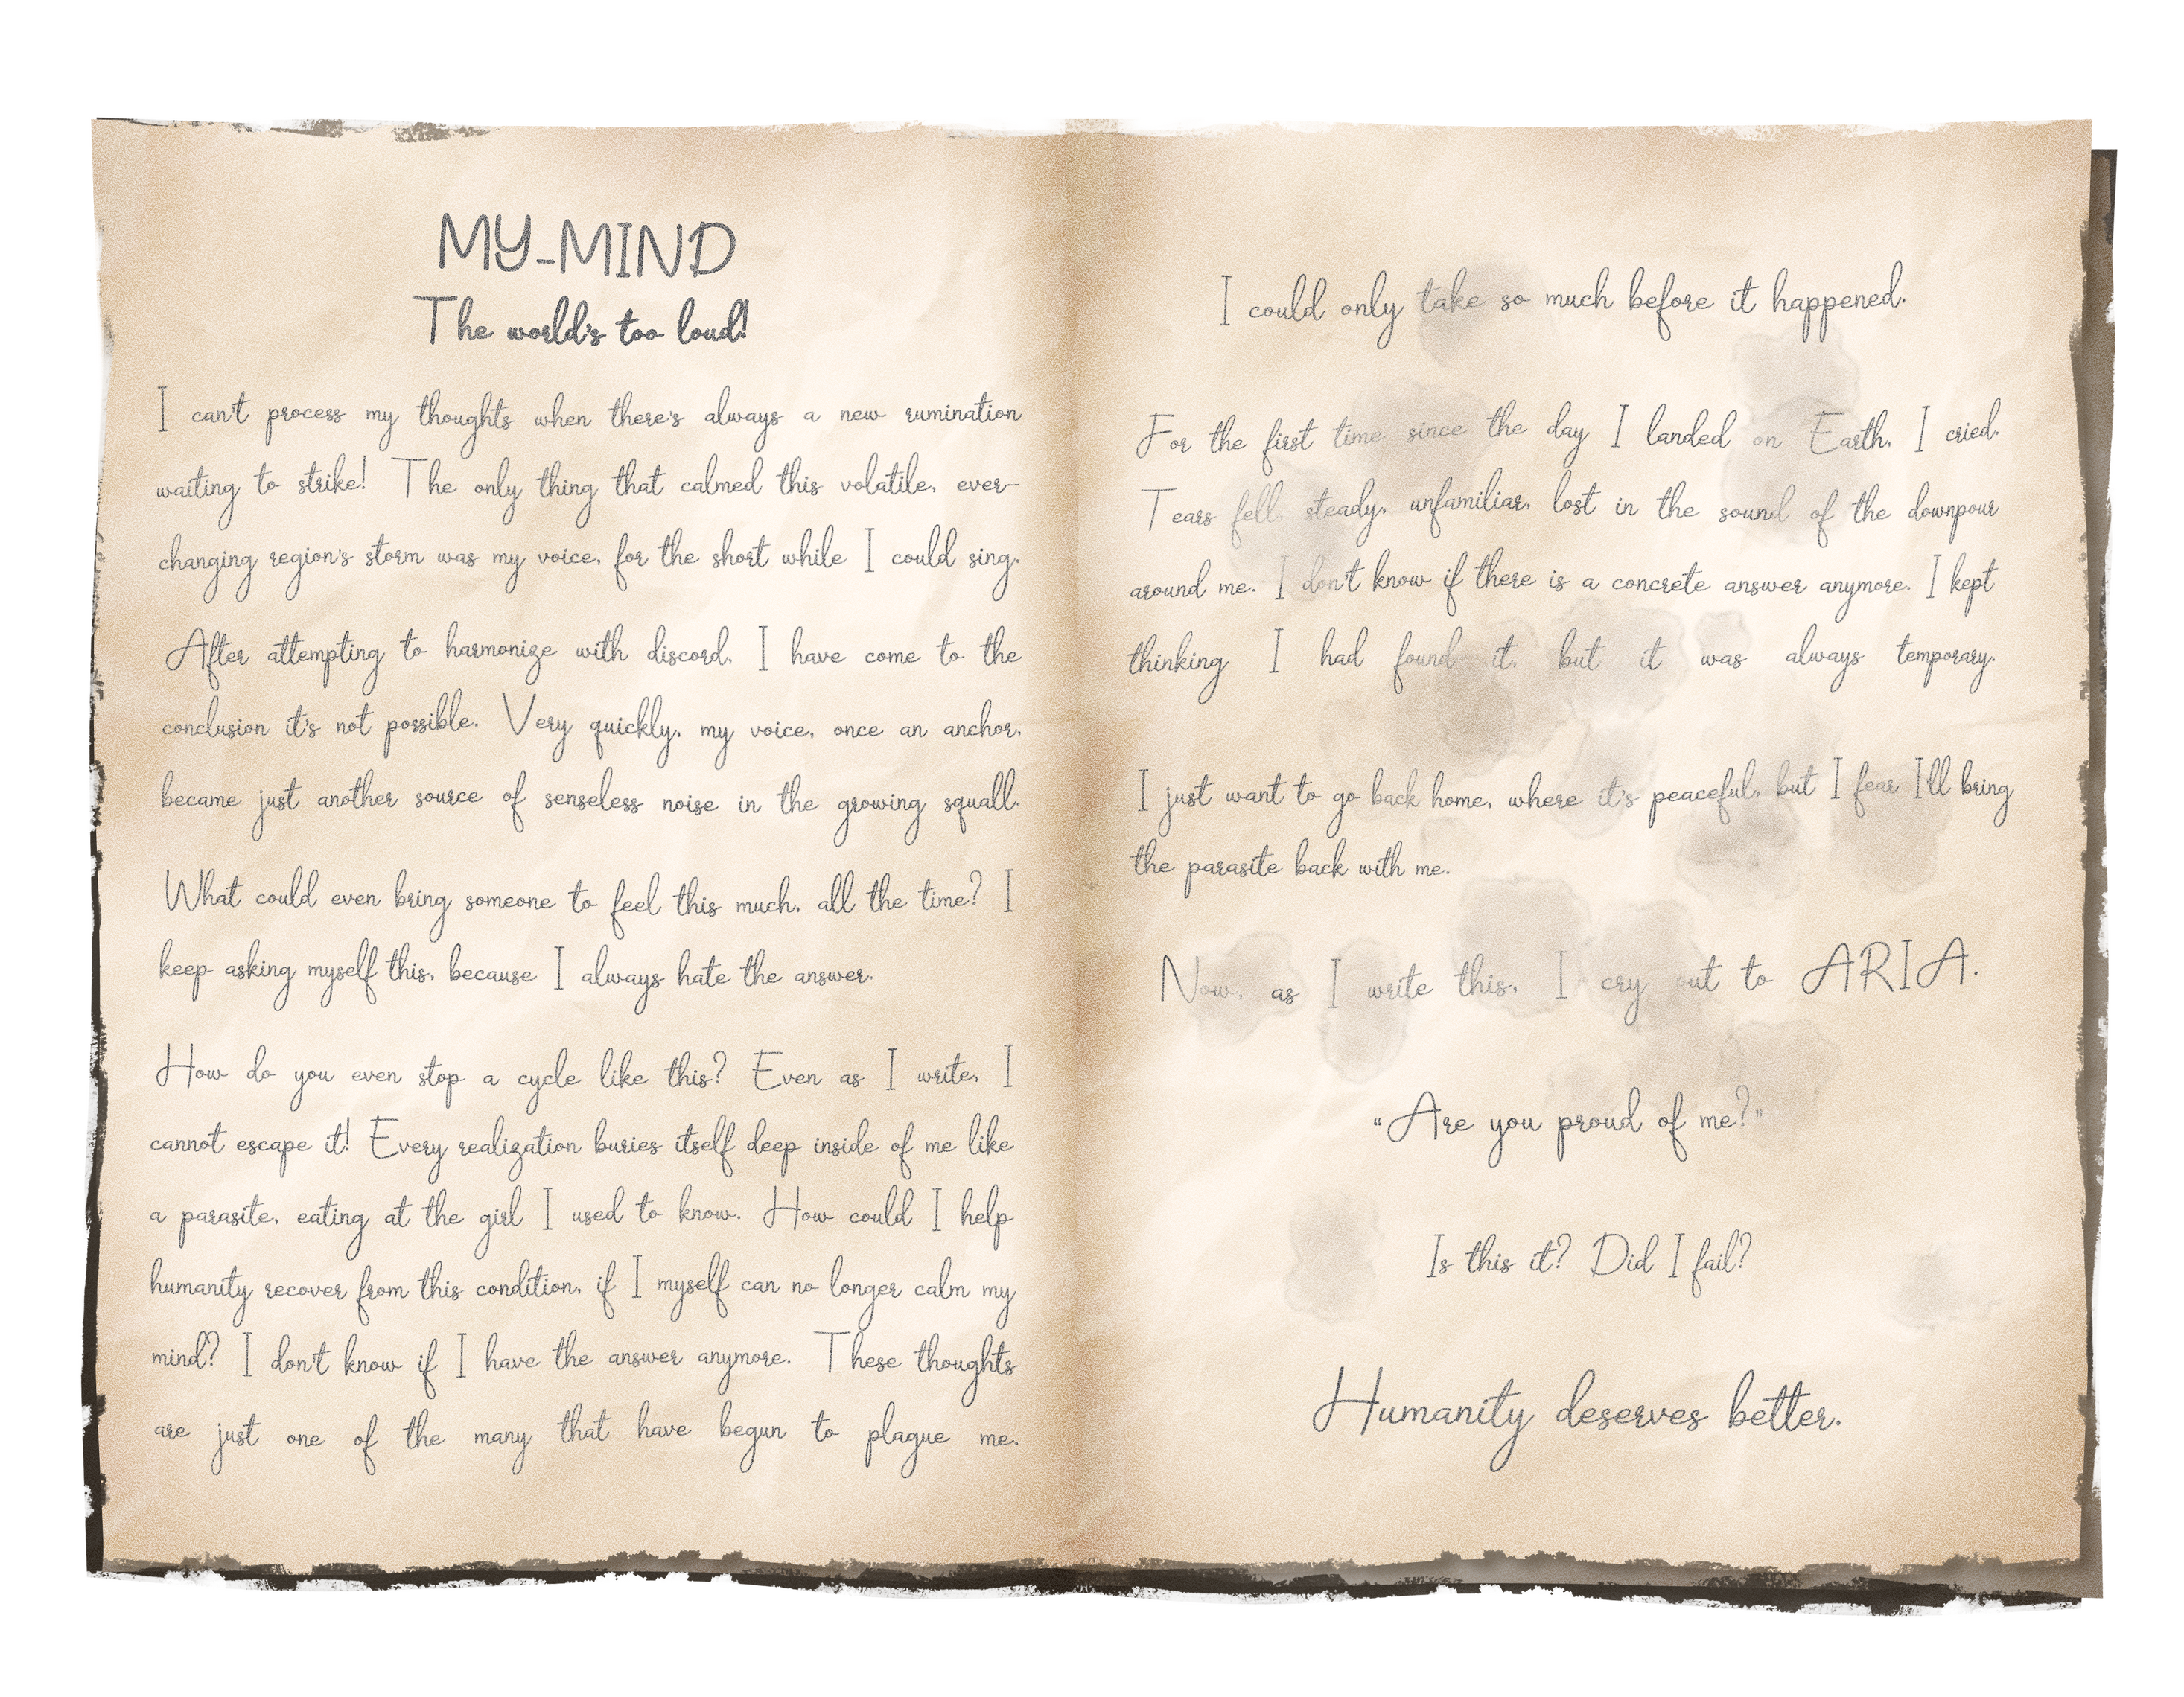 MY-MIND
The world's too loud!
I can't process my thoughts when there's always a new rumination
waiting to strike! The only thing that calmed this volatile, ever-
changing region's storm was my voice, for the short while I could sing.
After attempting to harmonize with discord, I have come to the
conclusion it's not possible. Very quickly, my voice, once an anchor,
became just another source of senseless noise in the growing squall.
What could even bring someone to feel this much, all the time? I
keep asking myself this, because I always hate the answer.
How do you even stop a cycle like this? Even as I write, I
cannot escape it! Every realization buries itself deep inside of me like
a parasite, eating at the girl I used to know. How could I help
humanity recover from this condition, if I myself can no longer calm my
mind? I don't know if I have the answer anymore. These thoughts
are just one of the many that have begun to plague me.
I could only take so much before it happened.
For the first time since the day I landed on Earth, I cried.
Tears fell, steady, unfamiliar, lost in the sound of the downpour
around me. I don't know if there is a concrete answer anymore. I kept
thinking I had found it, but it was always temporary.
I just want to go back home, where it's peaceful, but I fear I'll bring
the parasite back with me.
Now, as I write this, I cry out to ARIA.
"Are you proud of me?"
Is this it? Did I fail?
Humanity deserves better.